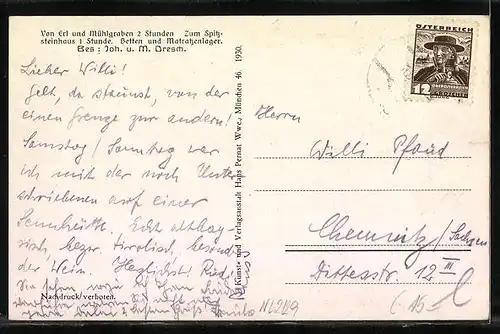 Von Erl und Mühlgraben 2 Stunden   Zum Spitz-
steinhaus 1 Stunde.  Betten und Matratzenlager.
Bes : Joh. u. M. Dresm.
ÖSTERREICH
12
GROSCHEN
Lieber Willi!
Gelt, da staunst, von der
einen Grenze zur andern!
Samstag / Sonntag war
ich mit der noch Unter
schriebenen auf einer
Sennhütte. Echt altbay-
risch, bezw. tirolisch, besond.
der Wein. Herzlichst Rudi
Nachdruck verboten.
Kunst- und Verlagsanstalt Hans Pernat Wwe, München 46. 1930.
Herrn
Willi Pfaud
Chemnitz / Sachsen
Dittesstr. 12 III